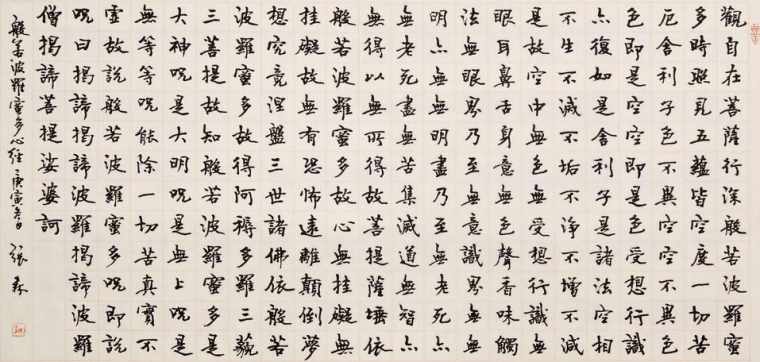 觀自在菩薩行深般若波羅蜜
多時照見五蘊皆空度一切苦
厄舍利子色不異空空不異色
色即是空空即是色受想行識
亦復如是舍利子是諸法空相
不生不滅不垢不淨不增不減
是故空中無色無受想行識無
眼耳鼻舌身意無色聲香味觸
法無眼界乃至無意識界無無
明亦無無明盡乃至無老死亦
無老死盡無苦集滅道無智亦
無得以無所得故菩提薩埵依
般若波羅蜜多故心無挂礙無
挂礙故無有恐怖遠離顛倒夢
想究竟涅盤三世諸佛依般若
波羅蜜多故得阿耨多羅三藐
三菩提故知般若波羅蜜多是
大神咒是大明咒是無上咒是
無等等咒能除一切苦真實不
虛故說般若波羅蜜多咒即說
咒曰揭諦揭諦波羅揭諦波羅
僧揭諦菩提娑婆訶
般若波羅蜜多心經 庚寅冬日